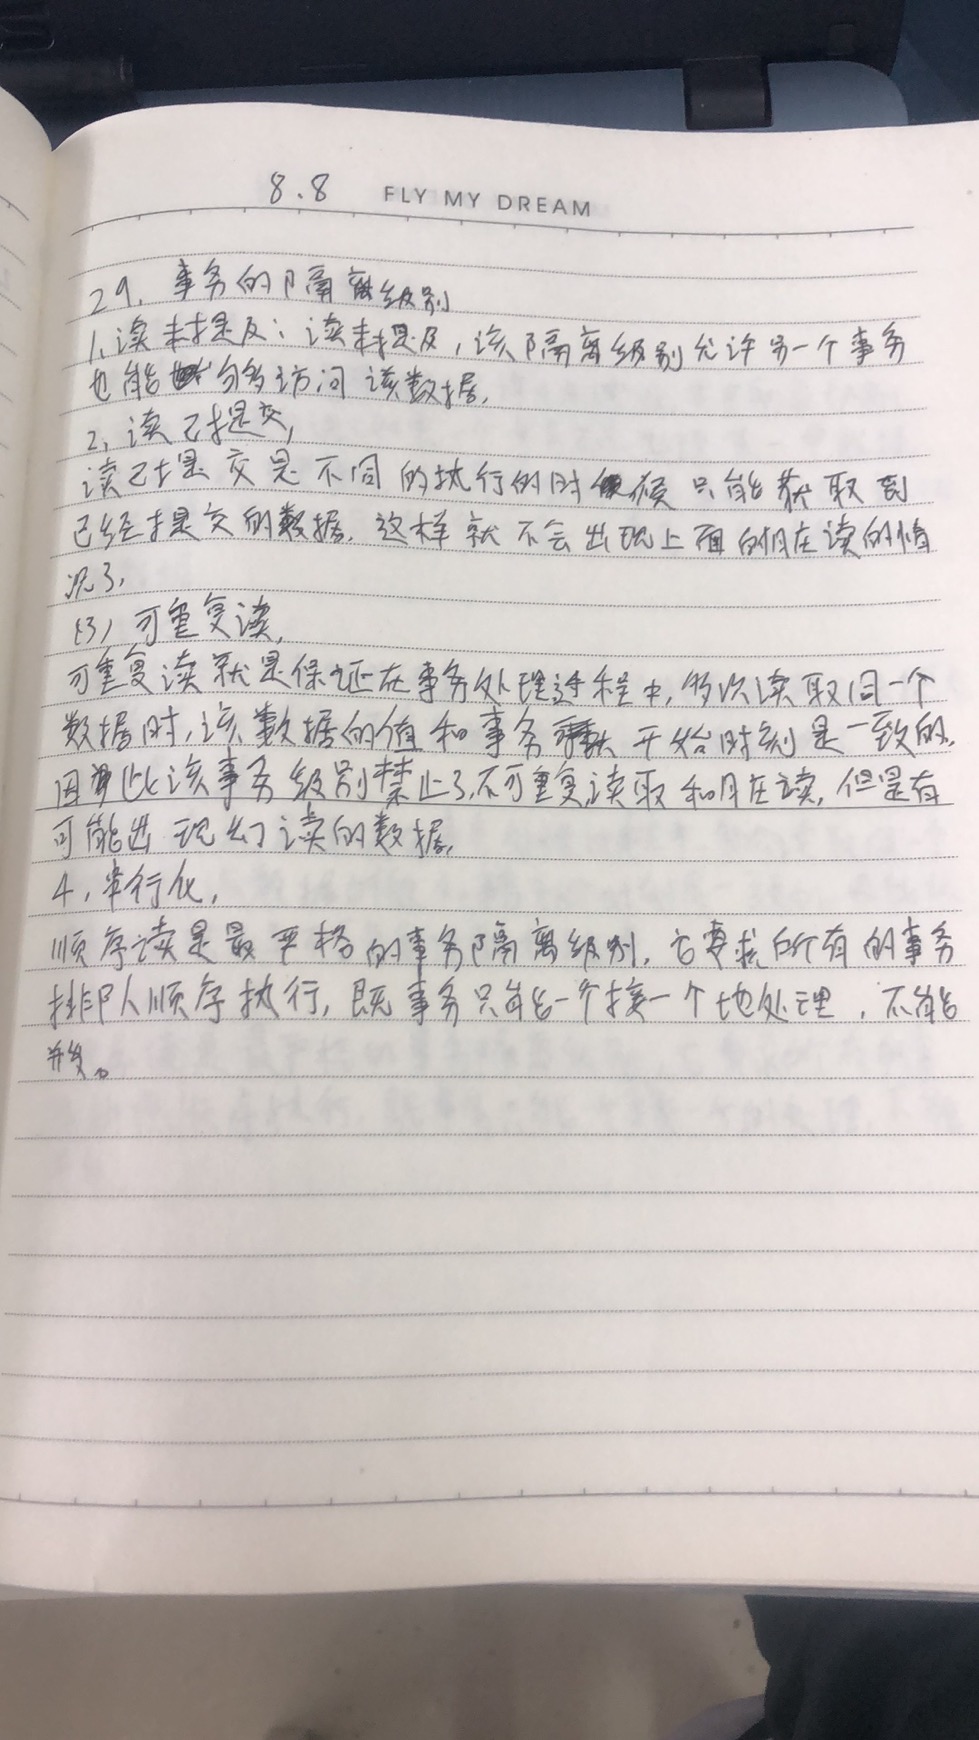 8.8 FLY MY DREAM
29. 事务的隔离级别
1. 读未提及：读未提及，该隔离级别允许另一个事务
也能够访问该数据.
2. 读已提交,
读已提交是不同的执行的时候只能获取到
已经提交的数据. 这样就不会出现上面的脏在读的情
况了.
(3) 可重复读.
可重复读就是保证在事务处理过程中，多次读取同一个
数据时, 该数据的值和事务开始时刻是一致的.
因此该事务级别禁止了不可重复读取和脏在读, 但是有
可能出现幻读的数据.
4. 串行化.
顺序读是最严格的事务隔离级别. 它要求所有的事务
排队顺序执行, 既事务只能一个接一个地处理，不能
并发。